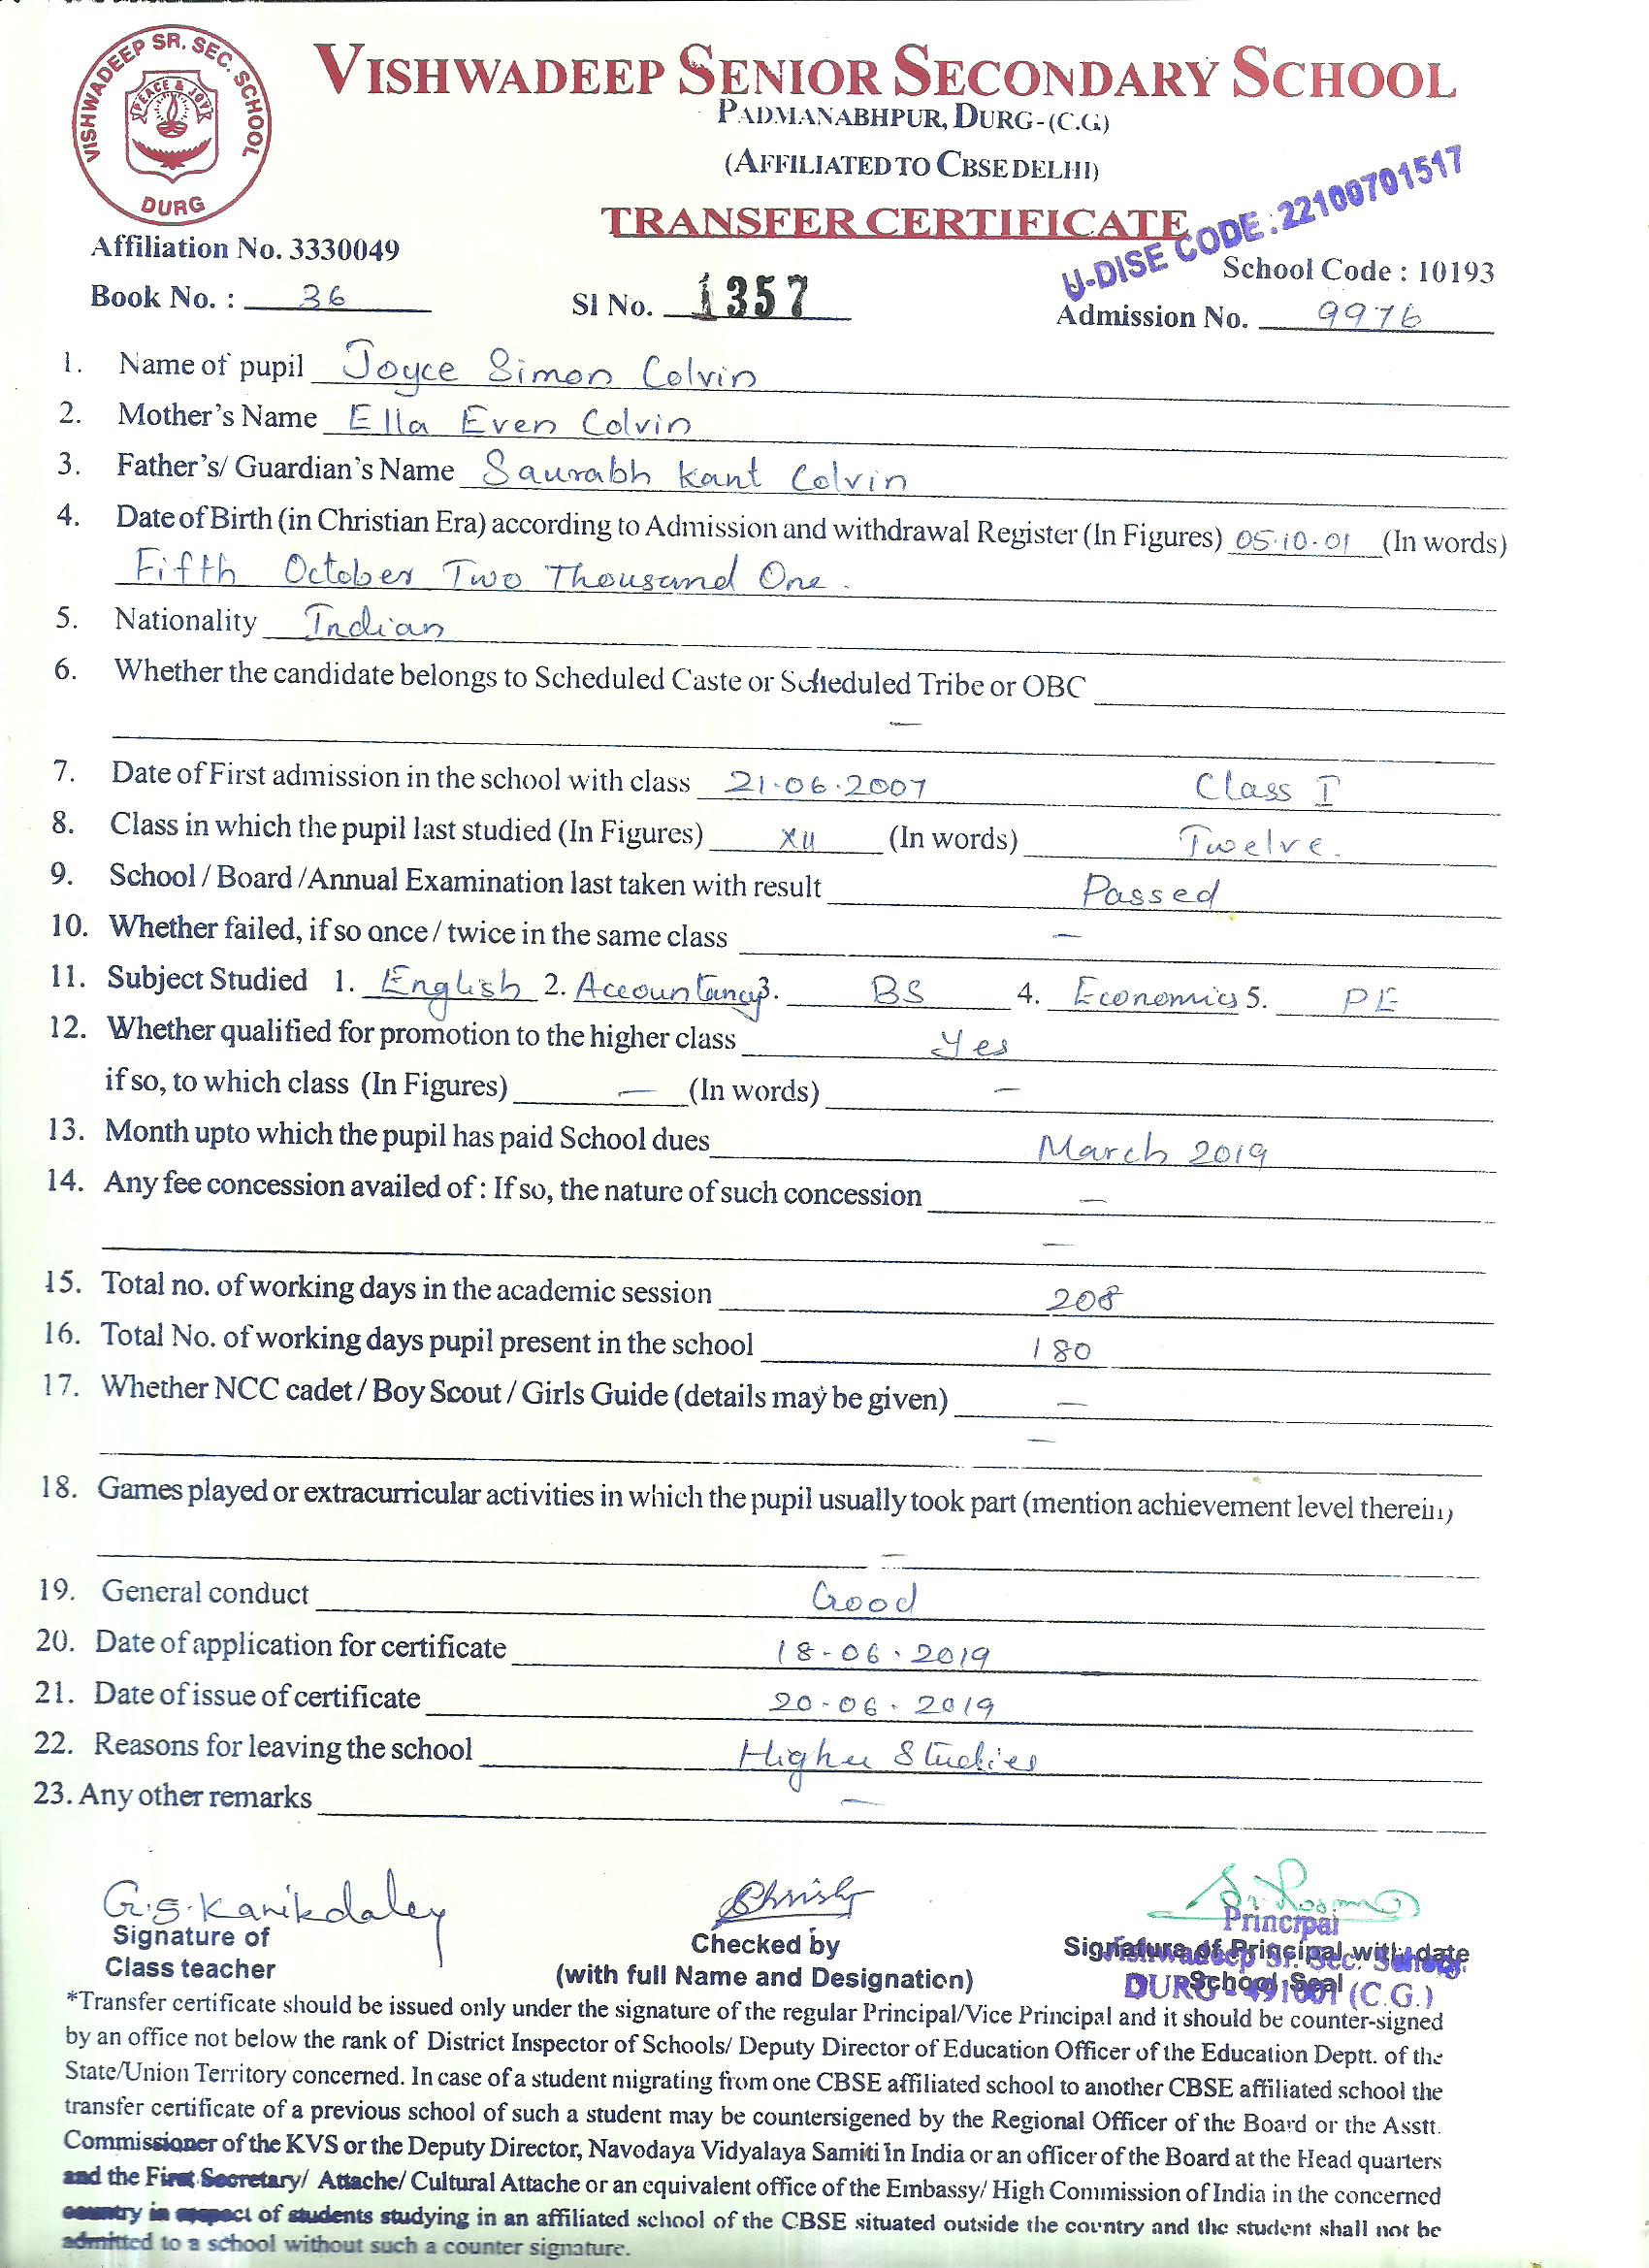 VISHWADEEP SR. SEC. SCHOOL
PEACE & JOY
DURG
VISHWADEEP SENIOR SECONDARY SCHOOL
PADMANABHPUR, DURG-(C.G)
(AFFILIATED TO CBSE DELHI)
TRANSFER CERTIFICATE
U-DISE CODE : 22100701517
Affiliation No. 3330049
School Code : 10193
Book No. : 36 Sl No. 1357 Admission No. 9976
1. Name of pupil Joyce Simon Colvin
2. Mother's Name Ella Even Colvin
3. Father's/ Guardian's Name Saurabh Kant Colvin
4. Date of Birth (in Christian Era) according to Admission and withdrawal Register (In Figures) 05.10.01 (In words)
Fifth October Two Thousand One.
5. Nationality Indian
6. Whether the candidate belongs to Scheduled Caste or Scheduled Tribe or OBC
—
7. Date of First admission in the school with class 21.06.2007 Class I
8. Class in which the pupil last studied (In Figures) XII (In words) Twelve.
9. School / Board /Annual Examination last taken with result Passed
10. Whether failed, if so once / twice in the same class —
11. Subject Studied 1. English 2. Accountancy 3. BS 4. Economics 5. PE
12. Whether qualified for promotion to the higher class Yes
if so, to which class (In Figures) — (In words) —
13. Month upto which the pupil has paid School dues March 2019
14. Any fee concession availed of : If so, the nature of such concession —
—
15. Total no. of working days in the academic session 208
16. Total No. of working days pupil present in the school 180
17. Whether NCC cadet / Boy Scout / Girls Guide (details may be given) —
—
18. Games played or extracurricular activities in which the pupil usually took part (mention achievement level therein)
—
19. General conduct Good
20. Date of application for certificate 18-06.2019
21. Date of issue of certificate 20-06.2019
22. Reasons for leaving the school Higher Studies
23. Any other remarks —
G.S. Kanikdaley
Principal
Signature of Checked by Signature of Principal with date
Vishwadeep Sr. Sec. School
Class teacher (with full Name and Designation) School Seal
DURG - 491001 (C.G.)
*Transfer certificate should be issued only under the signature of the regular Principal/Vice Principal and it should be counter-signed
by an office not below the rank of District Inspector of Schools/ Deputy Director of Education Officer of the Education Deptt. of the
State/Union Territory concerned. In case of a student migrating from one CBSE affiliated school to another CBSE affiliated school the
transfer certificate of a previous school of such a student may be countersigened by the Regional Officer of the Board or the Asstt.
Commissioner of the KVS or the Deputy Director, Navodaya Vidyalaya Samiti in India or an officer of the Board at the Head quarters
and the First Secretary/ Attache/ Cultural Attache or an equivalent office of the Embassy/ High Commission of India in the concerned
country in respect of students studying in an affiliated school of the CBSE situated outside the country and the student shall not be
admitted to a school without such a counter signature.